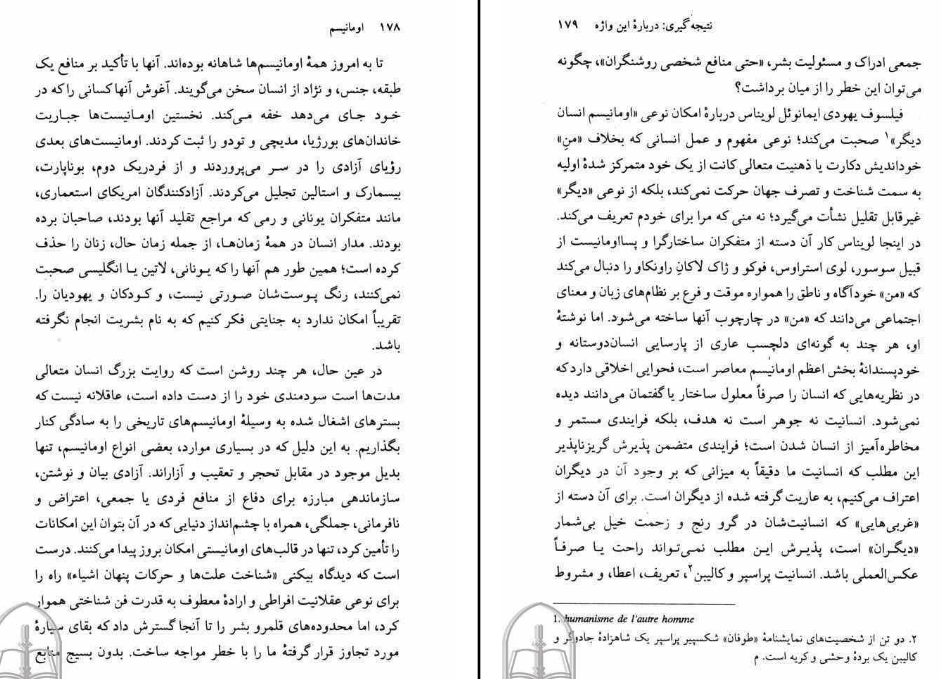 ۱۷۸ اومانیسم
تا به امروز همهٔ اومانیسم‌ها شاهانه بوده‌اند. آنها با تأکید بر منافع یک
طبقه، جنس، و نژاد از انسان سخن می‌گویند. آغوش آنها کسانی را که در
خود جای می‌دهد خفه می‌کند. نخستین اومانیست‌ها جباریت
خاندان‌های بورژیا، مدیچی و تودو را ثبت کردند. اومانیست‌های بعدی
رؤیای آزادی را در سر می‌پروردند و از فردریک دوم، بوناپارت،
بیسمارک و استالین تجلیل می‌کردند. آزادکنندگان امریکای استعماری،
مانند متفکران یونانی و رمی که مراجع تقلید آنها بودند، صاحبان برده
بودند. مدار انسان در همهٔ زمان‌ها، از جمله زمان حال، زنان را حذف
کرده است؛ همین طور هم آنها را که یونانی، لاتین یا انگلیسی صحبت
نمی‌کنند، رنگ پوست‌شان صورتی نیست، و کودکان و یهودیان را.
تقریباً امکان ندارد به جنایتی فکر کنیم که به نام بشریت انجام نگرفته
باشد.
در عین حال، هر چند روشن است که روایت بزرگ انسان متعالی
مدت‌ها است سودمندی خود را از دست داده است، عاقلانه نیست که
بسترهای اشغال شده به وسیلهٔ اومانیسم‌های تاریخی را به سادگی کنار
بگذاریم. به این دلیل که در بسیاری موارد، بعضی انواع اومانیسم، تنها
بدیل موجود در مقابل تحجر و تعقیب و آزاراند. آزادی بیان و نوشتن،
سازماندهی مبارزه برای دفاع از منافع فردی یا جمعی، اعتراض و
نافرمانی، جملگی، همراه با چشم‌انداز دنیایی که در آن بتوان این امکانات
را تأمین کرد، تنها در قالب‌های اومانیستی امکان بروز پیدا می‌کنند. درست
است که دیدگاه بیکنی «شناخت علت‌ها و حرکات پنهان اشیاء» راه را
برای نوعی عقلانیت افراطی و ارادهٔ معطوف به قدرت فن شناختی هموار
کرد، اما محدوده‌های قلمرو بشر را تا آنجا گسترش داد که بقای سیارهٔ
مورد تجاوز قرار گرفتهٔ ما را با خطر مواجه ساخت. بدون بسیج منابع
نتیجه‌گیری: دربارهٔ این واژه ۱۷۹
جمعی ادراک و مسئولیت بشر، «حتی منافع شخصی روشنگران»، چگونه
می‌توان این خطر را از میان برداشت؟
فیلسوف یهودی ایمانوئل لویناس دربارهٔ امکان نوعی «اومانیسم انسان
دیگر»۱ صحبت می‌کند؛ نوعی مفهوم و عمل انسانی که بخلاف «منِ»
خوداندیش دکارت یا ذهنیت متعالی کانت از یک خود متمرکز شدهٔ اولیه
به سمت شناخت و تصرف جهان حرکت نمی‌کند، بلکه از نوعی «دیگر»
غیرقابل تقلیل نشأت می‌گیرد؛ نه منی که مرا برای خودم تعریف می‌کند.
در اینجا لویناس کار آن دسته از متفکران ساختارگرا و پسااومانیست از
قبیل سوسور، لوی استراوس، فوکو و ژاک لاکانِ راونکاو را دنبال می‌کند
که «من» خودآگاه و ناطق را همواره موقت و فرع بر نظام‌های زبان و معنای
اجتماعی می‌دانند که «من» در چارچوب آنها ساخته می‌شود. اما نوشتهٔ
او، هر چند به گونه‌ای دلچسب عاری از پارسایی انسان‌دوستانه و
خودپسندانهٔ بخش اعظم اومانیسم معاصر است، فحوایی اخلاقی دارد که
در نظریه‌هایی که انسان را صرفاً معلول ساختار یا گفتمان می‌دانند دیده
نمی‌شود. انسانیت نه جوهر است نه هدف، بلکه فرایندی مستمر و
مخاطره‌آمیز از انسان شدن است؛ فرایندی متضمن پذیرش گریزناپذیر
این مطلب که انسانیت ما دقیقاً به میزانی که بر وجود آن در دیگران
اعتراف می‌کنیم، به عاریت گرفته شده از دیگران است. برای آن دسته از
«غربی‌هایی» که انسانیت‌شان در گرو رنج و زحمت خیل بی‌شمار
«دیگران» است، پذیرش این مطلب نمی‌تواند راحت یا صرفاً
عکس‌العملی باشد. انسانیت پراسپر و کالیبن۲، تعریف، اعطا، و مشروط
1. humanisme de l'autre homme
۲. دو تن از شخصیت‌های نمایشنامهٔ «طوفان» شکسپیر پراسپر یک شاهزادهٔ جادوگر و
کالیبن یک بردهٔ وحشی و کریه است. م